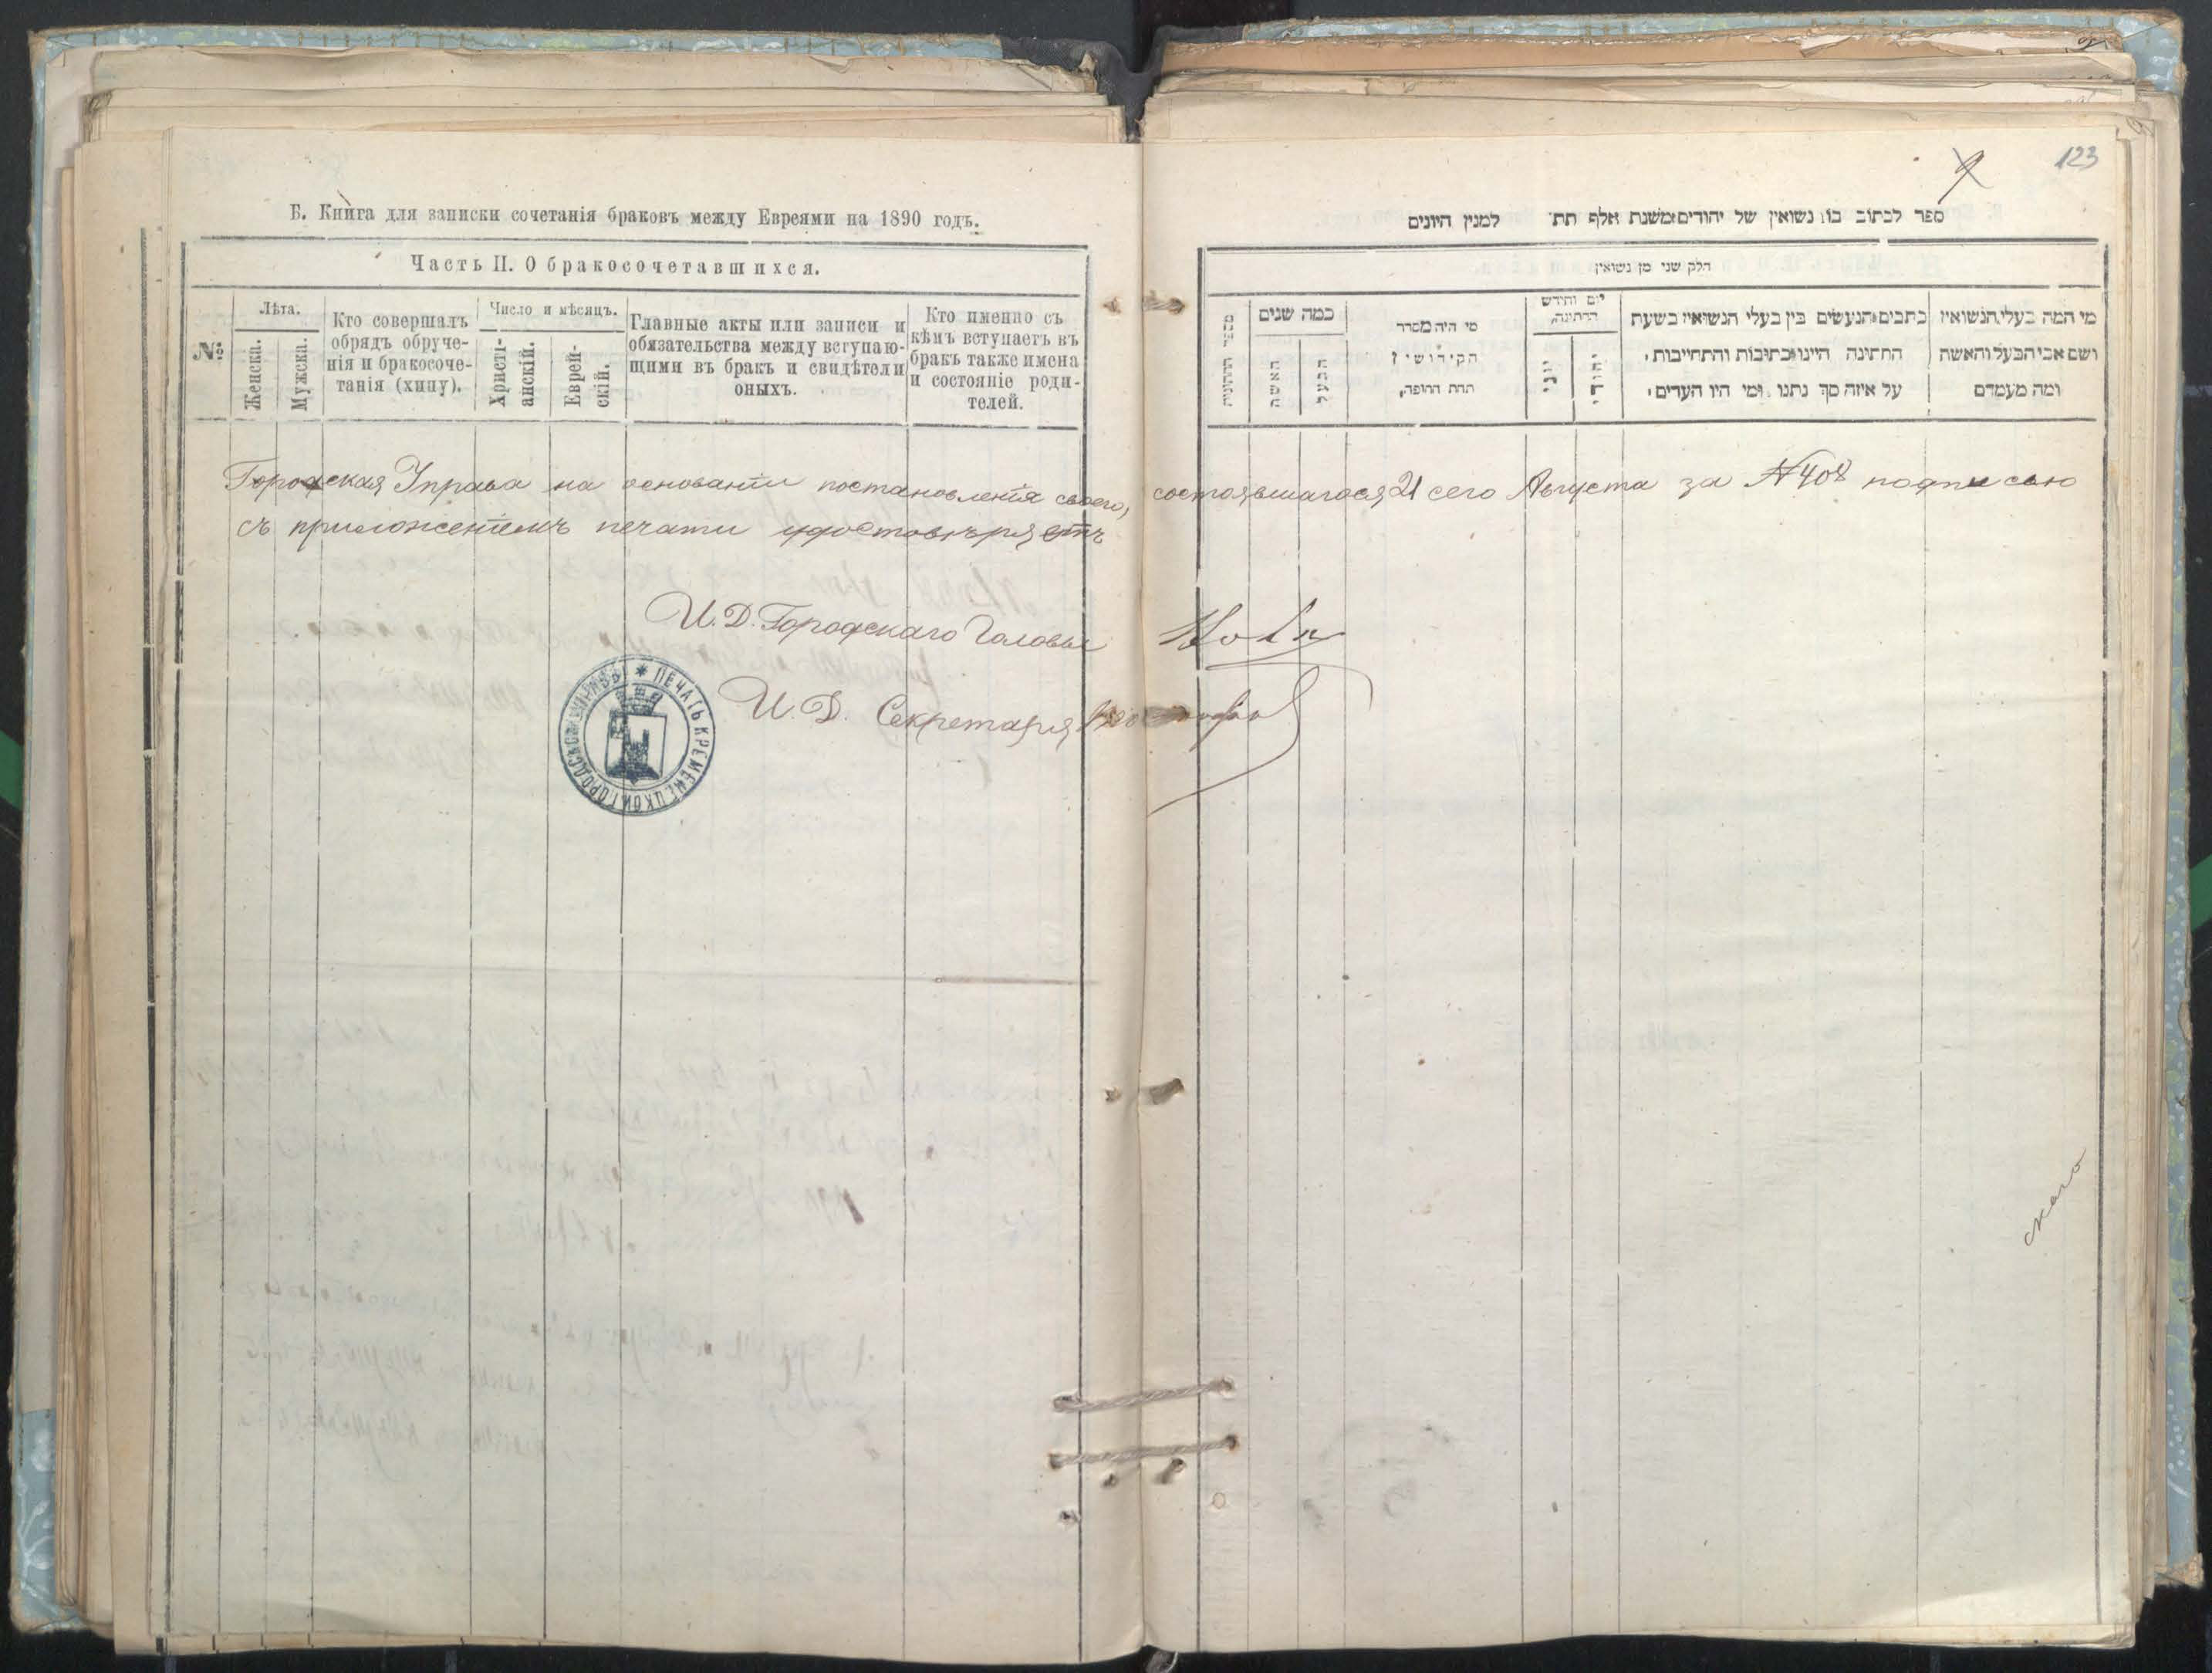 Б. Книга для записки сочетанія браковъ между Евреями на 1890 годъ.
Часть II. О бракосочетавшихся.
№
Лѣта.
Женска.
Мужска.
Кто совершалъ
обрядъ обруче-
нія и бракосоче-
танія (хипу).
Число и мѣсяцъ.
Христі-
анскій.
Еврей-
скій.
Главные акты или записи и
обязательства между вступаю-
щими въ бракъ и свидѣтели
оныхъ.
Кто именно съ
кѣмъ вступаетъ въ
бракъ также имена
и состояніе роди-
телей.
123
9
ספר לכתוב בו נשואין של יהודים משנת אלף תת למנין היונים
חלק שני מן נשואין
מי המה בעלי הנשואין
ושם אבי הבעל והאשה
ומה מעמדם
כתבים הנעשים בין בעלי הנשואין בשעת
החתונה היינו כתובות והתחייבות,
על איזה סך נתנו ומי היו העדים,
יום וחודש
החתונה,
יהודי
יוני
מי היה מסדר
הקידושין
תחת החופה,
כמה שנים
הבעל
האשה
מספר החתונות
Городская Управа на основаніи постановленія своего, состоявшагося 21 сего Августа за № 408 подписью
съ приложеніемъ печати удостовѣряетъ
И. Д. Городскаго Головы
И. Д. Секретаря
ПЕЧАТЬ КРЕМЕНЕЦКОЙ ГОРОДСКОЙ УПРАВЫ
скаго